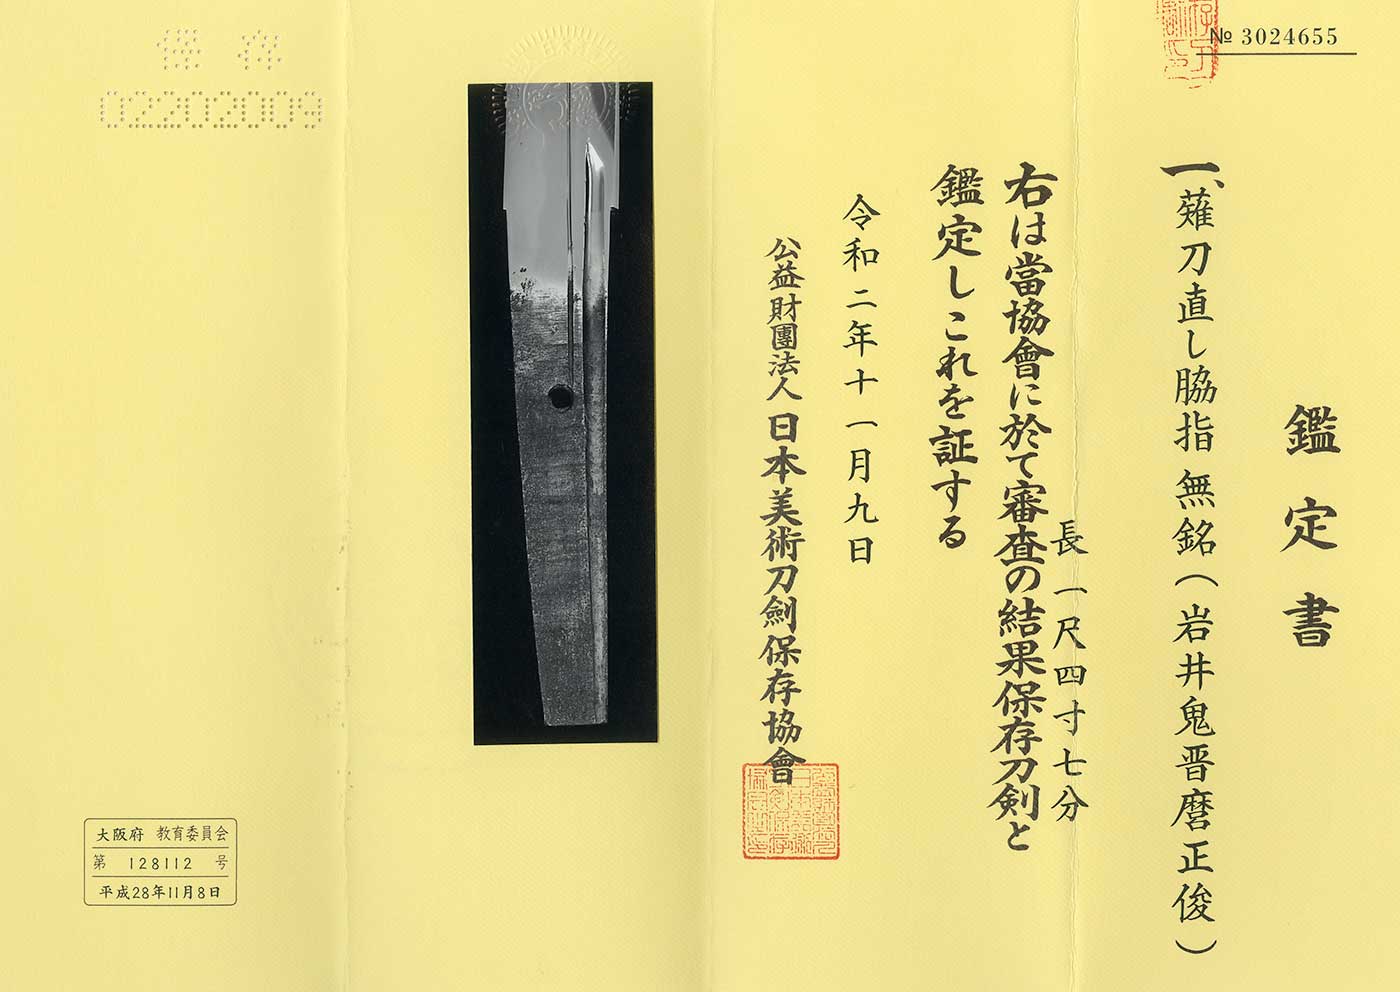 № 3024655
鑑定書
一、薙刀直し脇指 無銘(岩井鬼晋麿正俊)
長 一尺四寸七分
右は當協會に於て審査の結果保存刀剣と
鑑定しこれを証する
令和二年十一月九日
公益財團法人 日本美術刀劍保存協會
保存
02202009
大阪府 教育委員会
第 128112 号
平成28年11月8日